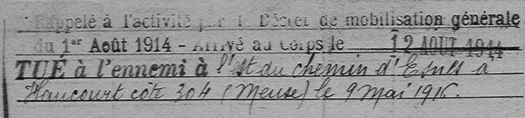 Rappelé à l'activité par le Décret de mobilisation générale
du 1er Août 1914 - Arrivé au Corps le 12 AOUT 1914
TUÉ à l'ennemi à l'Est du chemin d'Esnes à
Haucourt côte 304 (Meuse) le 9 Mai 1916.